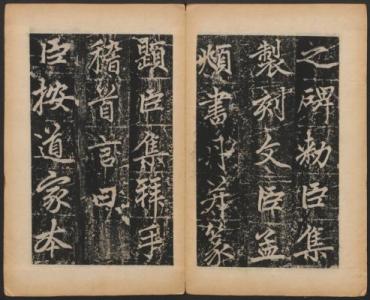 之碑勑臣集
製刻文臣孟
頫書丹并篆
題臣集拜手
稽首言曰
臣按道家本